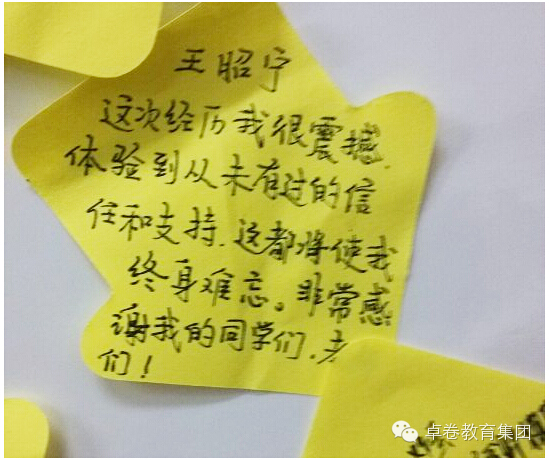 王昭宁
这次经历我很震撼.
体验到从未有过的信
任和支持.这都将使我
终身难忘。非常感
谢我的同学们.老
们!
卓卷教育集团